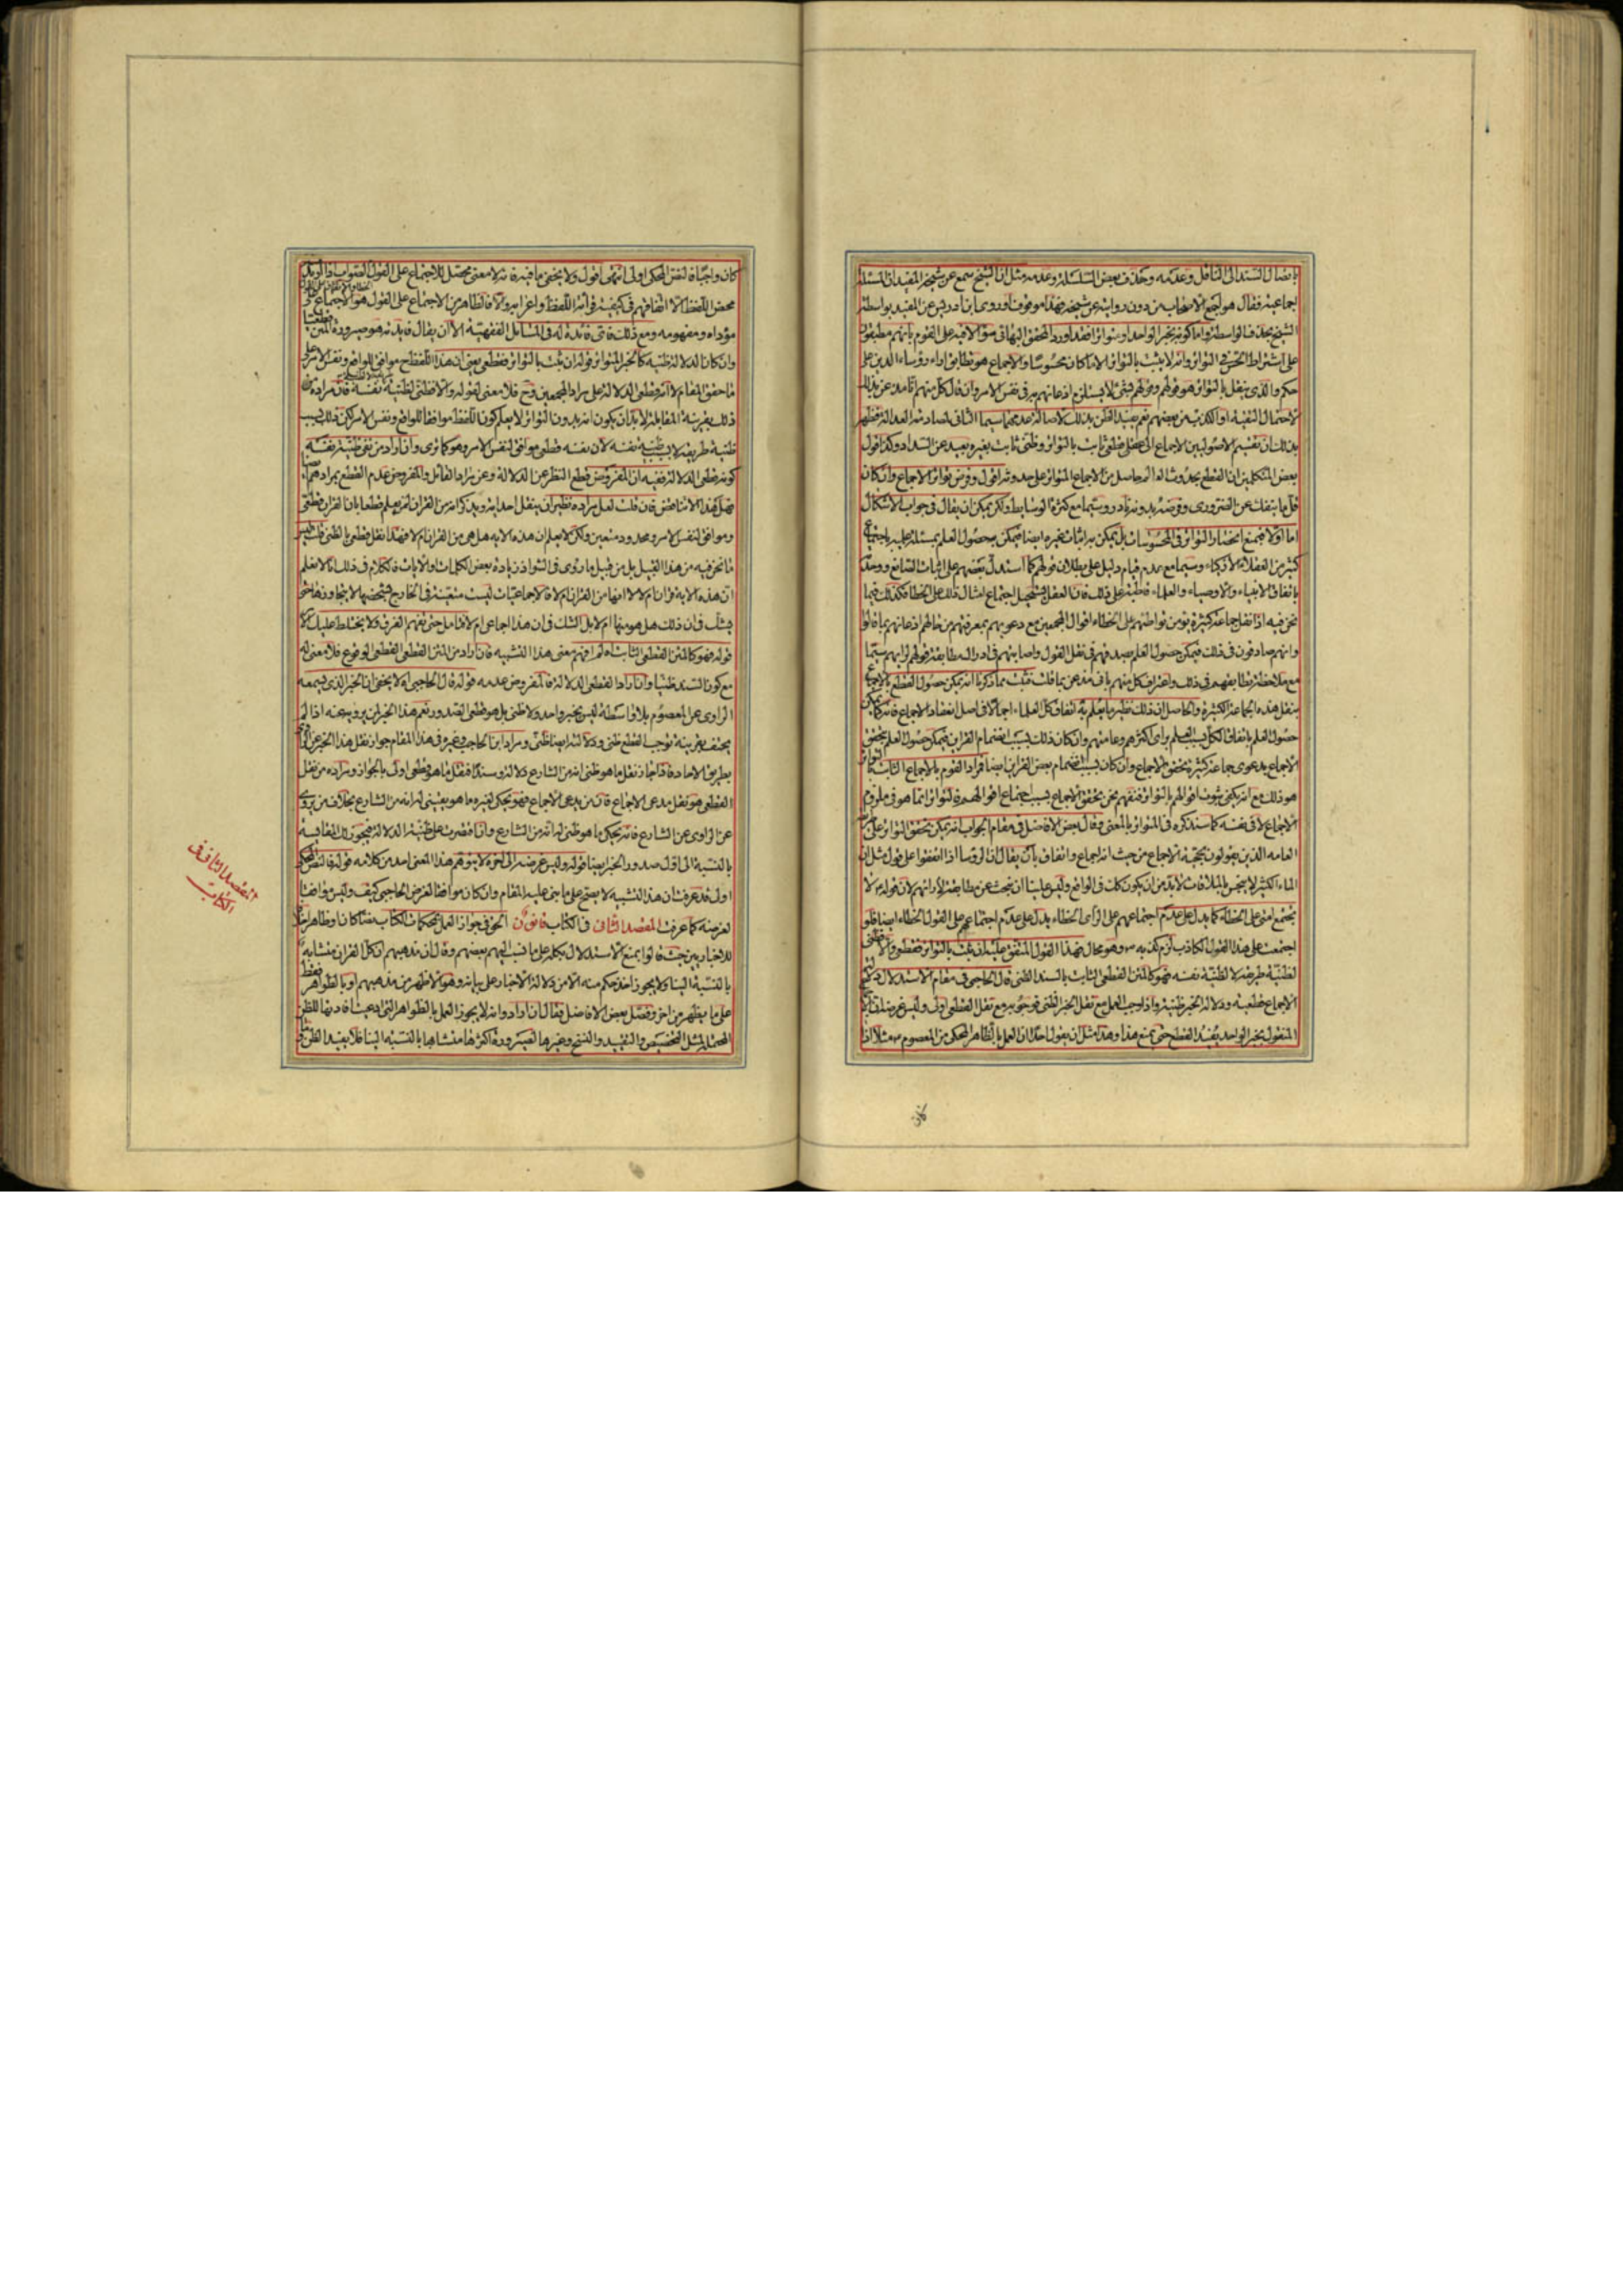 باتصال السند الى الناقل وعدمه وحذف بعض السلسلة وعدمه مثل ان الشيخ سمع عن شيخه المفيد ان المسئلة
اجماعية فقال هو اجمع الاصحاب من دون رواية عن شيخه فهذا موقوف او روى ابن ادريس عن المفيد بواسطة
الشيخ بحذف الواسطة واما كونه بخبر الواحد او متواترا فقد اورد المحقق البهائى سؤالا فيه على القوم بانهم مطبقون
على اشتراط الحس فى التواتر وانه لا يثبت بالتواتر الا ما كان محسوسا والاجماع هو تطابق اراء رؤساء الدين على
حكم والذى ينقل بالتواتر هو قولهم وقولهم بشئ لا يستلزم اذعانهم به فى نفس الامر وان قال كل منهم انا مذعن بذلك
لاحتمال التقية او الكذب من بعضهم نعم يفيد الظن بذلك لاصالة عدمهما سيما الثانى لمصادمته العدالة فظهر
بذلك ان تقسيم الاصوليين الاجماع الى قطعى ثابت بالتواتر وظنى ثابت بغيره بعيد عن السداد وكذا قول
بعض المتكلمين ان القطع بحدوث العالم حاصل من الاجماع المتواتر على حدوثه اقول وفرض تواتر الاجماع وان كان
قل ما ينفك عن الضرورى وفرضه بدونه نادر وسيما مع كثرة الوسايط ولكن يمكن ان يقال فى جواب الاشكال
اما اولا فبمنع انحصار التواتر فى المحسوسات بل يمكن به اثبات غيره ايضا فيمكن حصول العلم بمسئلة علمية باجتماع
كثير من العقلاء الاذكياء وسيما مع عدم قيام دليل على بطلان قولهم كما استدل بعضهم على اثبات الصانع ووحدته
باتفاق الانبياء والاوصياء والعلماء قاطبة على ذلك فان العقل يستحيل اجتماع امثال ذلك على الخطاء فكذلك فيما
نحن فيه اذا نقل جماعة كثيرة يؤمن تواطئهم على الخطاء اقوال المجمعين مع دعويهم بمعرفتهم من حالهم اذعانهم بما قالوا
وانهم صادقون فى ذلك فيمكن حصول العلم بصدقهم فى نقل القول واصابتهم فى ادراك مطابقة قولهم لرأيهم سيما
مع ملاحظة تطابقهم فى ذلك واعتراف كل منهم بانى مذعن بما قلت فثبت مما ذكرنا انه يمكن حصول القطع بالاجماع
بنقل هذه الجماعة الكثيرة والحاصل ان ذلك نظير ما يعلم به اتفاق كل العلماء اجمالا فى اصل انعقاد الاجماع فانه كما يمكن
حصول العلم باتفاق الكل بسبب العلم برأى اكثرهم وعامتهم وان كان ذلك بسبب انضمام القراين فيمكن حصول العلم بتحقق
الاجماع بدعوى جماعة كثيرة تحقق الاجماع وان كان بسبب انضمام بعض القراين ايضا فمراد القوم بالاجماع الثابت بالتواتر
هو ذلك مع انه يكفى ثبوت اقوالهم بالتواتر
الاجماع لا فى نفسه كما سنذكره فى المتواتر بالمعنى وقال بعض الافاضل فى مقام الجواب انه يمكن تحقق التواتر على
العامه الذين يقولون بحجية الاجماع من حيث انه اجماع واتفاق بان يقال ان الرؤسا اذا اتفقوا على قول مثل ان
الماء الكثير لا ينجس بالملاقات لا بد من ان يكون كك فى الواقع وليس علينا ان نبحث عن مطابقته لارائهم لان قوله ص لا
يجتمع امتى على الخطاء كما يدل على عدم اجتماعهم على الرأى الخطاء يدل على عدم اجتماعهم على القول الخطاء ايضا فلو
اجتمعت على هذا القول الكاذب لزم كذبه ص وهو محال فهذا القول المتفق عليه ان ثبت بالتواتر فقطعى والا فظنى
لظنية طريقه لا لظنية نفسه فهو كالمتن القطعى الثابت بالسند الظنى قال الحاجبى فى مقام الاستدلال
الاجماع قطعية ودلالة الخبر ظنية واذا وجب العمل مع نقل الخبر الظنى فوجوبه مع نقل القطعى اولى وليس غرضه
المنقول بخبر الواحد يفيد القطع حتى يمنع هذا وهذا مثل ان يقول احد ان العمل بالظاهر المحكى من المعصوم ع مثلا اذا
كان
كان واجبا فالنص المحكى اولى انتهى اقول ولا يخفى ما فيه فانه لا معنى محصل للاجتماع على القول الصواب
محض اللفظ الا اتفاقهم فى كيفية قرائة اللفظ واعرابه والا فالظاهر من الاجتماع على القول هو الاجتماع على
مؤداه ومفهومه ومع ذلك فاى فائدة له فى المسائل الفقهية الا ان يقال فايدته هو صيرورة المتن قطعيا
وان كان الدلالة ظنية كالخبر المتواتر قوله ان ثبت بالتواتر فقطعى يعنى ان هذا اللفظ ح موافق للواقع ونفس الامر على
ما حقق المقام لا انه قطعى الدلالة على مراد المجمعين وح فلا معنى لقوله والا فظنى لظنية نفسه فان مراده من
ذلك بقرينة المقابلة لا بد ان يكون انه بدون التواتر لا يعلم كون اللفظ موافقا للواقع ونفس الامر لكن ذلك بسبب
ظنية طريقه لا بسبب ظنية نفسه لان نفسه قطعى موافق لنفس الامر وهو كما ترى وان اراد من نفى ظنية نفسه
كونه قطعى الدلالة ففيه ان المفروض قطع النظر عن الدلالة وعن مراد القائل والمفروض عدم القطع بمرادهم
فهل هذا الا تناقض فان قلت لعل مراده نظير ان ينقل احد اية ويذكر انه من القران لمن يعلم قطعا بان القران قطعى
وموافق لنفس الامر ومحدود متعين ولكن لا يعلم ان هذه الاية هل هى من القران ام لا فهذا نقل قطعى بالظنى قلت ليس
ما نحن فيه من هذا القبيل بل من قبيل ما روى فى الشواذ زيادة بعض الكلمات والايات فالكلام فى ذلك انا لا نعلم
ان هذه الاية قران ام لا لا انها من القران ام لا فالاجماعيات ليست متعينة فى الخارج شخصها لا يتجاوزها حتى
يشك فى ان ذلك هل هو منها ام لا بل الشك فى ان هذا اجماعى ام لا فتامل حتى تفهم الفرق ولا يختلط عليك الامر
قوله فهو كالمتن القطعى الثابت اه لم افهم معنى هذا التشبيه فان اراد من المتن القطعى القطعى الوقوع فلا معنى له
مع كون السند ظنيا وان اراد القطعى الدلالة فالمفروض عدمه قوله قال الحاجبى اه لا يخفى ان الخبر الذى يسمعه
الراوى عن المعصوم بلا واسطة ليس بخبر واحد ولا ظنى بل هو قطعى الصدور نعم هذا الخبر لمن يرويه عنه اذا لم
يحتف بقرينة توجب القطع ظنى ودلالته ايضا ظنى ومراد ابن الحاجب وغيره فى هذا المقام جواز نقل هذا الخبر عن الراوى
بطريق الاحاد فاذا جاز نقل ما هو ظنى انه من الشارع دلالة وسندا فنقل ما هو قطعى اولى بالجواز ومراده من نقل
القطعى هو نقل مدعى الاجماع فان من يدعى الاجماع فهو يحكى لغيره ما هو يقينى له انه من الشارع بخلاف من يروى
عن الراوى عن الشارع فانه يحكى ما هو ظنى له انه من الشارع وانما قصرت على ظنية الدلالة فيجوز لك المقايسة
بالنسبة الى اول صدور الخبر ايضا قوله وليس غرضه الى اخره لا يتوهم هذا المعنى احد من كلامه قوله فالنص المحكى
اولى قد عرفت ان هذا التشبيه لا يصح على ما بنى عليه المقام وان كان موافقا لغرض الحاجبى كيف وليس موافقا
لغرضه كما عرفت المقصد الثانى فى الكتاب قانون الحق فى جواز العمل بمحكمات الكتاب نصا كان او ظاهرا خلافا
للاخباريين حيث قالوا بمنع الاستدلال بكله على ما نسب اليهم بعضهم وقال ان مذهبهم ان كل القران متشابه
بالنسبة الينا ولا يجوز اخذ حكم منه الا من دلالة الاخبار على بيانه وهو الاظهر من مذهبهم او بالظواهر فقط
على ما يظهر من اخر وفصل بعض الافاضل فقال ان ارادوا انه لا يجوز العمل بالظواهر التى ادعيت افادتها للظن
المحتملة لمثل التخصيص والتقييد والنسخ وغيرها لصيرورة اكثرها متشابها بالنسبة الينا فلا يفيد الظن
المقصد الثانى فى
الكتاب